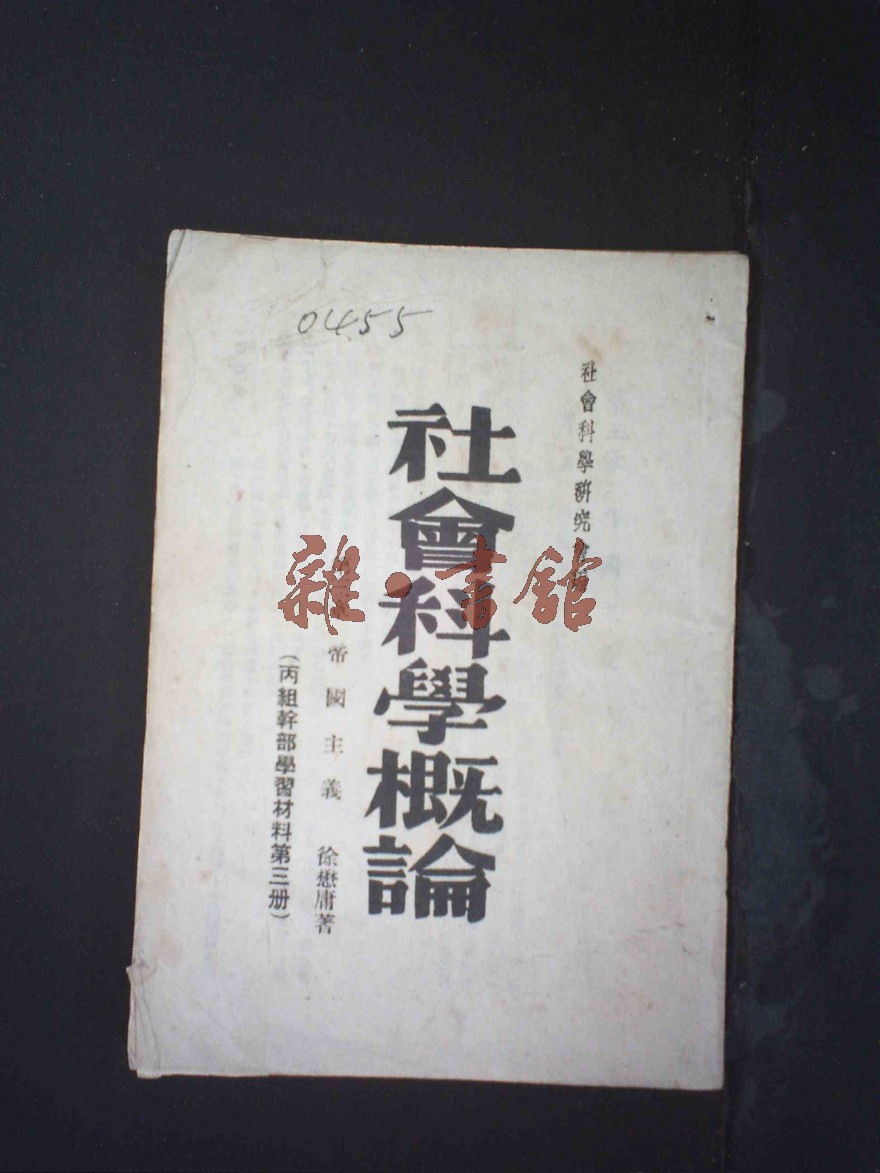 0455
社會科學研究會編
社會科學概論
帝國主義 徐懋庸著
(丙組幹部學習材料第三册)
雜·書舘